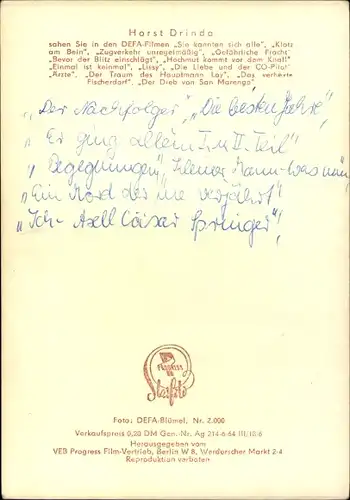 Horst Drinda
sahen Sie in den DEFA-Filmen "Sie kannten sich alle", "Klotz
am Bein", "Zugverkehr unregelmäßig", "Gefährliche Fracht"
"Bevor der Blitz einschlägt", "Hochmut kommt vor dem Knall"
"Einmal ist keinmal", "Lissy", "Die Liebe und der CO-Pilot"
"Ärzte", "Der Traum des Hauptmann Loy", "Das verhexte
Fischerdorf", "Der Dieb von San Marengo"
"Der Nachfolger", "Die besten Jahre",
"Er ging allein I. u. II. Teil"
"Begegnungen", "Kleiner Mann - was nun"
"Ein Mord der nie verjährt"
"Ich - Axel Cäsar Springer"
Progress
Starfoto
Foto: DEFA-Blümel, Nr. 2.000
Verkaufspreis 0,20 DM Gen.-Nr. Ag 214-6-64 III/18-6
Herausgegeben vom
VEB Progress Film-Vertrieb, Berlin W 8, Werderscher Markt 2-4
Reproduktion verboten